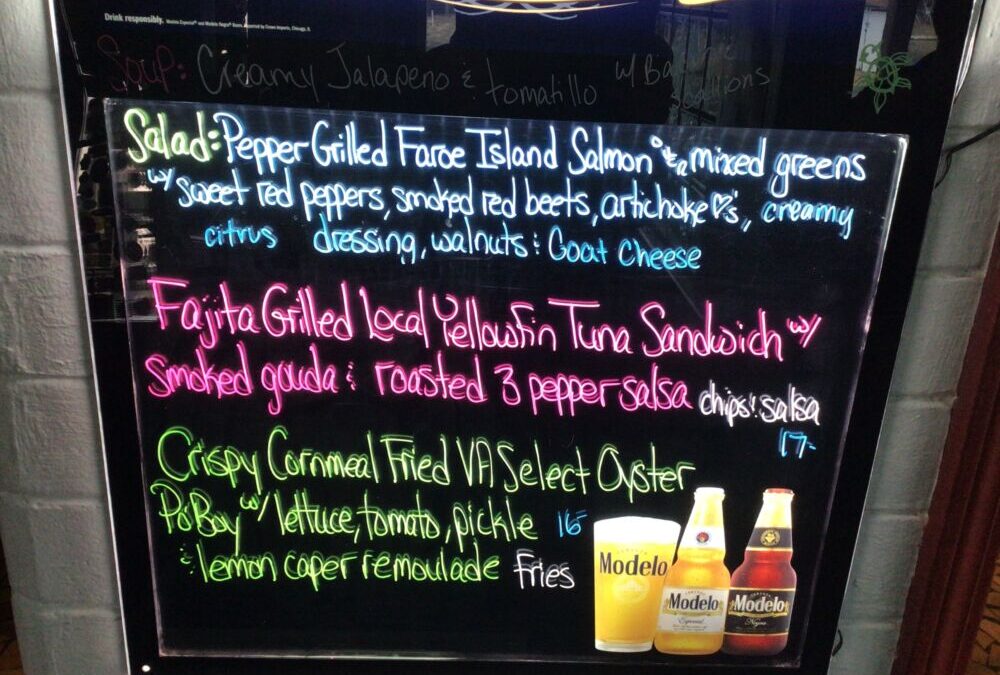 Drink responsibly.
Soup: Creamy Jalapeno & tomatillo w/
Salad: Pepper Grilled Faroe Island Salmon mixed greens
w/ sweet red peppers, smoked red beets, artichoke ♡'s, creamy
citrus dressing, walnuts & Goat Cheese
Fajita Grilled Local Yellowfin Tuna Sandwich w/
smoked gouda & roasted 3 pepper salsa chips & salsa
17-
Crispy Cornmeal Fried VA Select Oyster
Po'Boy w/ lettuce, tomato, pickle 16-
& lemon caper remoulade Fries
Modelo
Modelo
Especial
Modelo
Negra